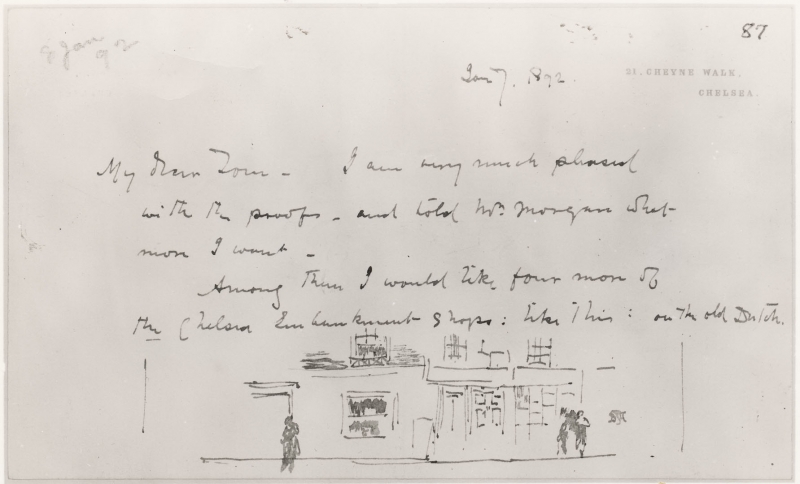 87
8 Jan 92
Jan 7. 1892.
21, CHEYNE WALK,
CHELSEA.
My dear Tom - I am very much pleased
with the proofs - and told Mr Morgan what
more I want -
Among them I would like four more of
the Chelsea Embankment Shops: like this: on the old Dutch.